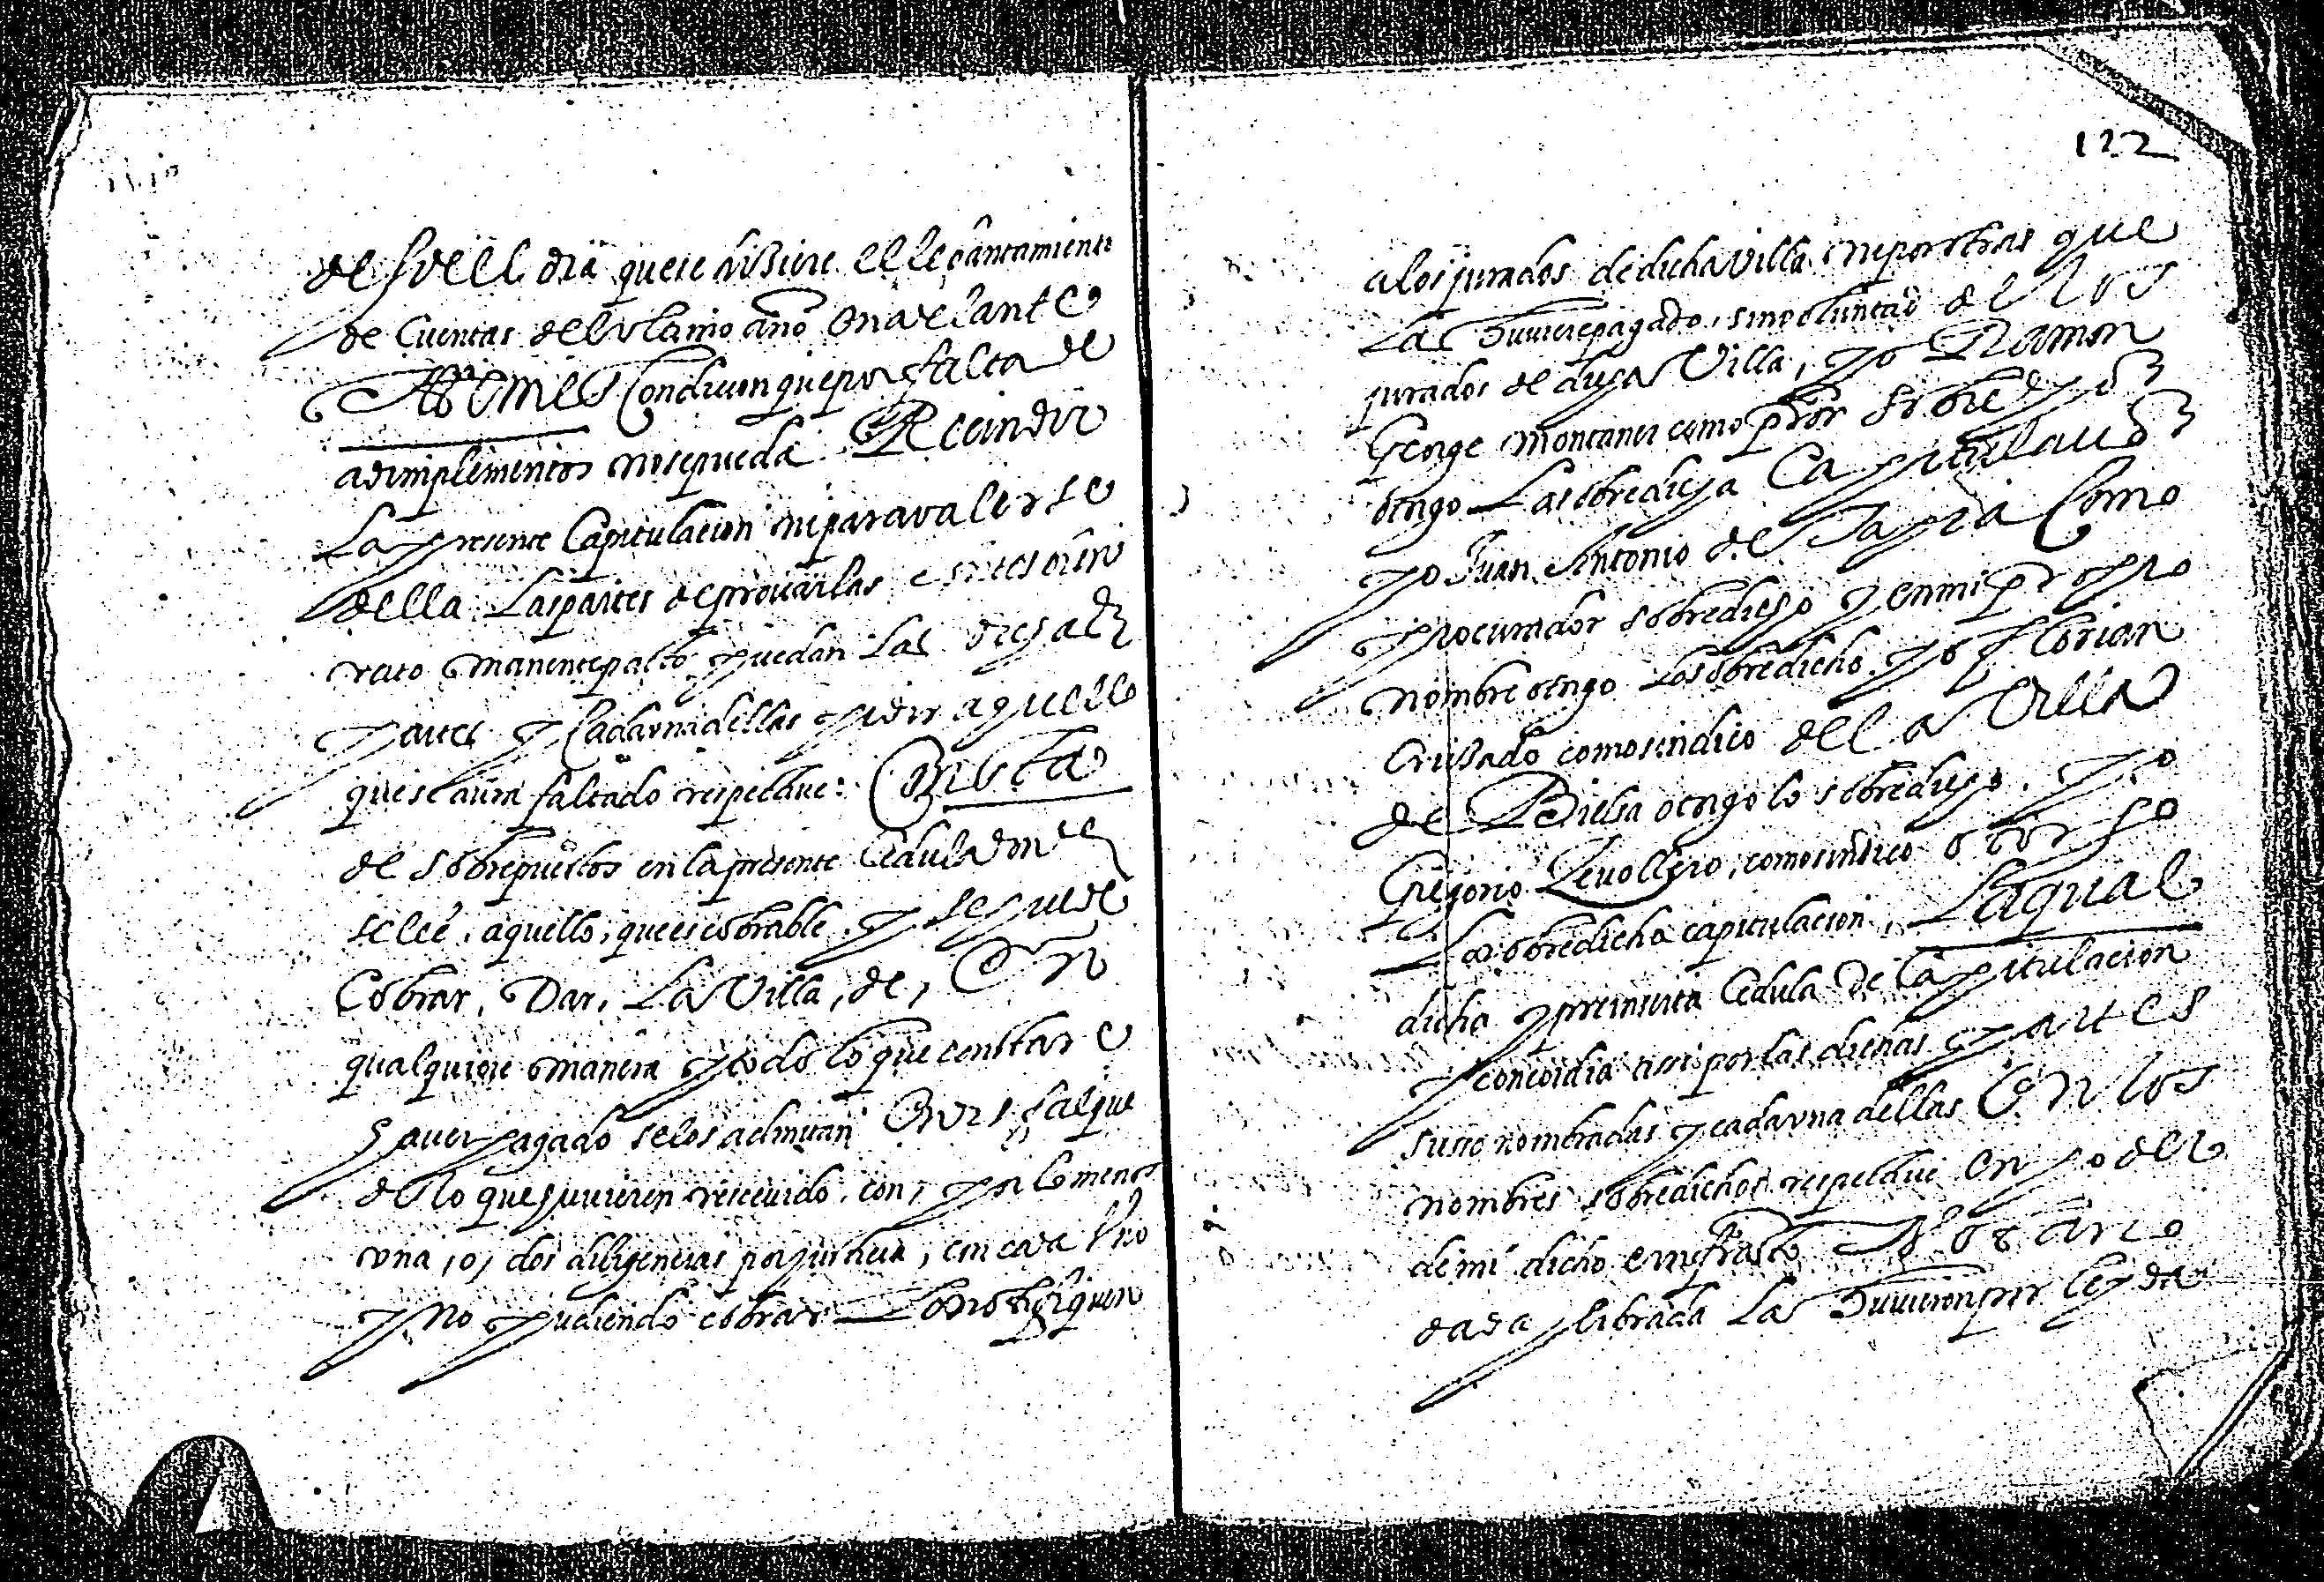 desde el dia que se hiziere el leuantamiento
de Cuentas del vltimo año en adelante
Ittem es Condicion que por falta de
adimplimentos no se pueda Recindir
La presente Capitulacion ni para valerse
della Las partes de prouarlas
rato manente pacto puedan las dichas
partes y Cada vna dellas pidir aquello
que se aura faltado respectiue: Consta
de sobrepuestos en la presente Cedula donde
se leé, aquello, que es cobrable, y se puede
Cobrar, Dar, La Villa, de, En
qualquiere manera y todo lo que constare
hauer pagado se los admitan
de lo que huuieren receuido, con, por lo menos
vna, o, dos diligencias por justicia, en cada vno
y no pudiendo cobrar Lo notifiquen
122
a los jurados de dicha villa ni por otras que
La huuiere pagado, sin voluntad de los
jurados de dicha Villa, yo Ramon
George montaner como pror sobredho
otrgo La sobredicha Capitulacion
yo Juan Antonio de Tapia Como
procurador sobredicho y en mi proprio
nombre otrgo Lo sobredicho. yo Florian
Crusado como sindico de la Villa
de Bielsa otrgo lo sobredicho. yo
Gregorio Zeuollero, como sindico otorgo
La sobredicha capitulacion, La qual
dicha y preinserta Cedula de Capitulacion
y concordia assi por las dichas partes
suso nombradas y cada vna dellas En los
nombres sobredichos respectiue en poder
de mi dicho e infrascto Notario
dada y librada La huuieron por leyda